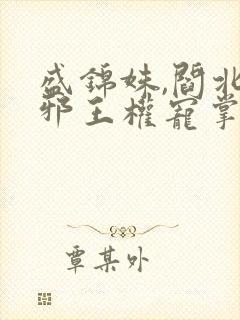 盛錦姝,閻北
邪王權寵掌
覃某外